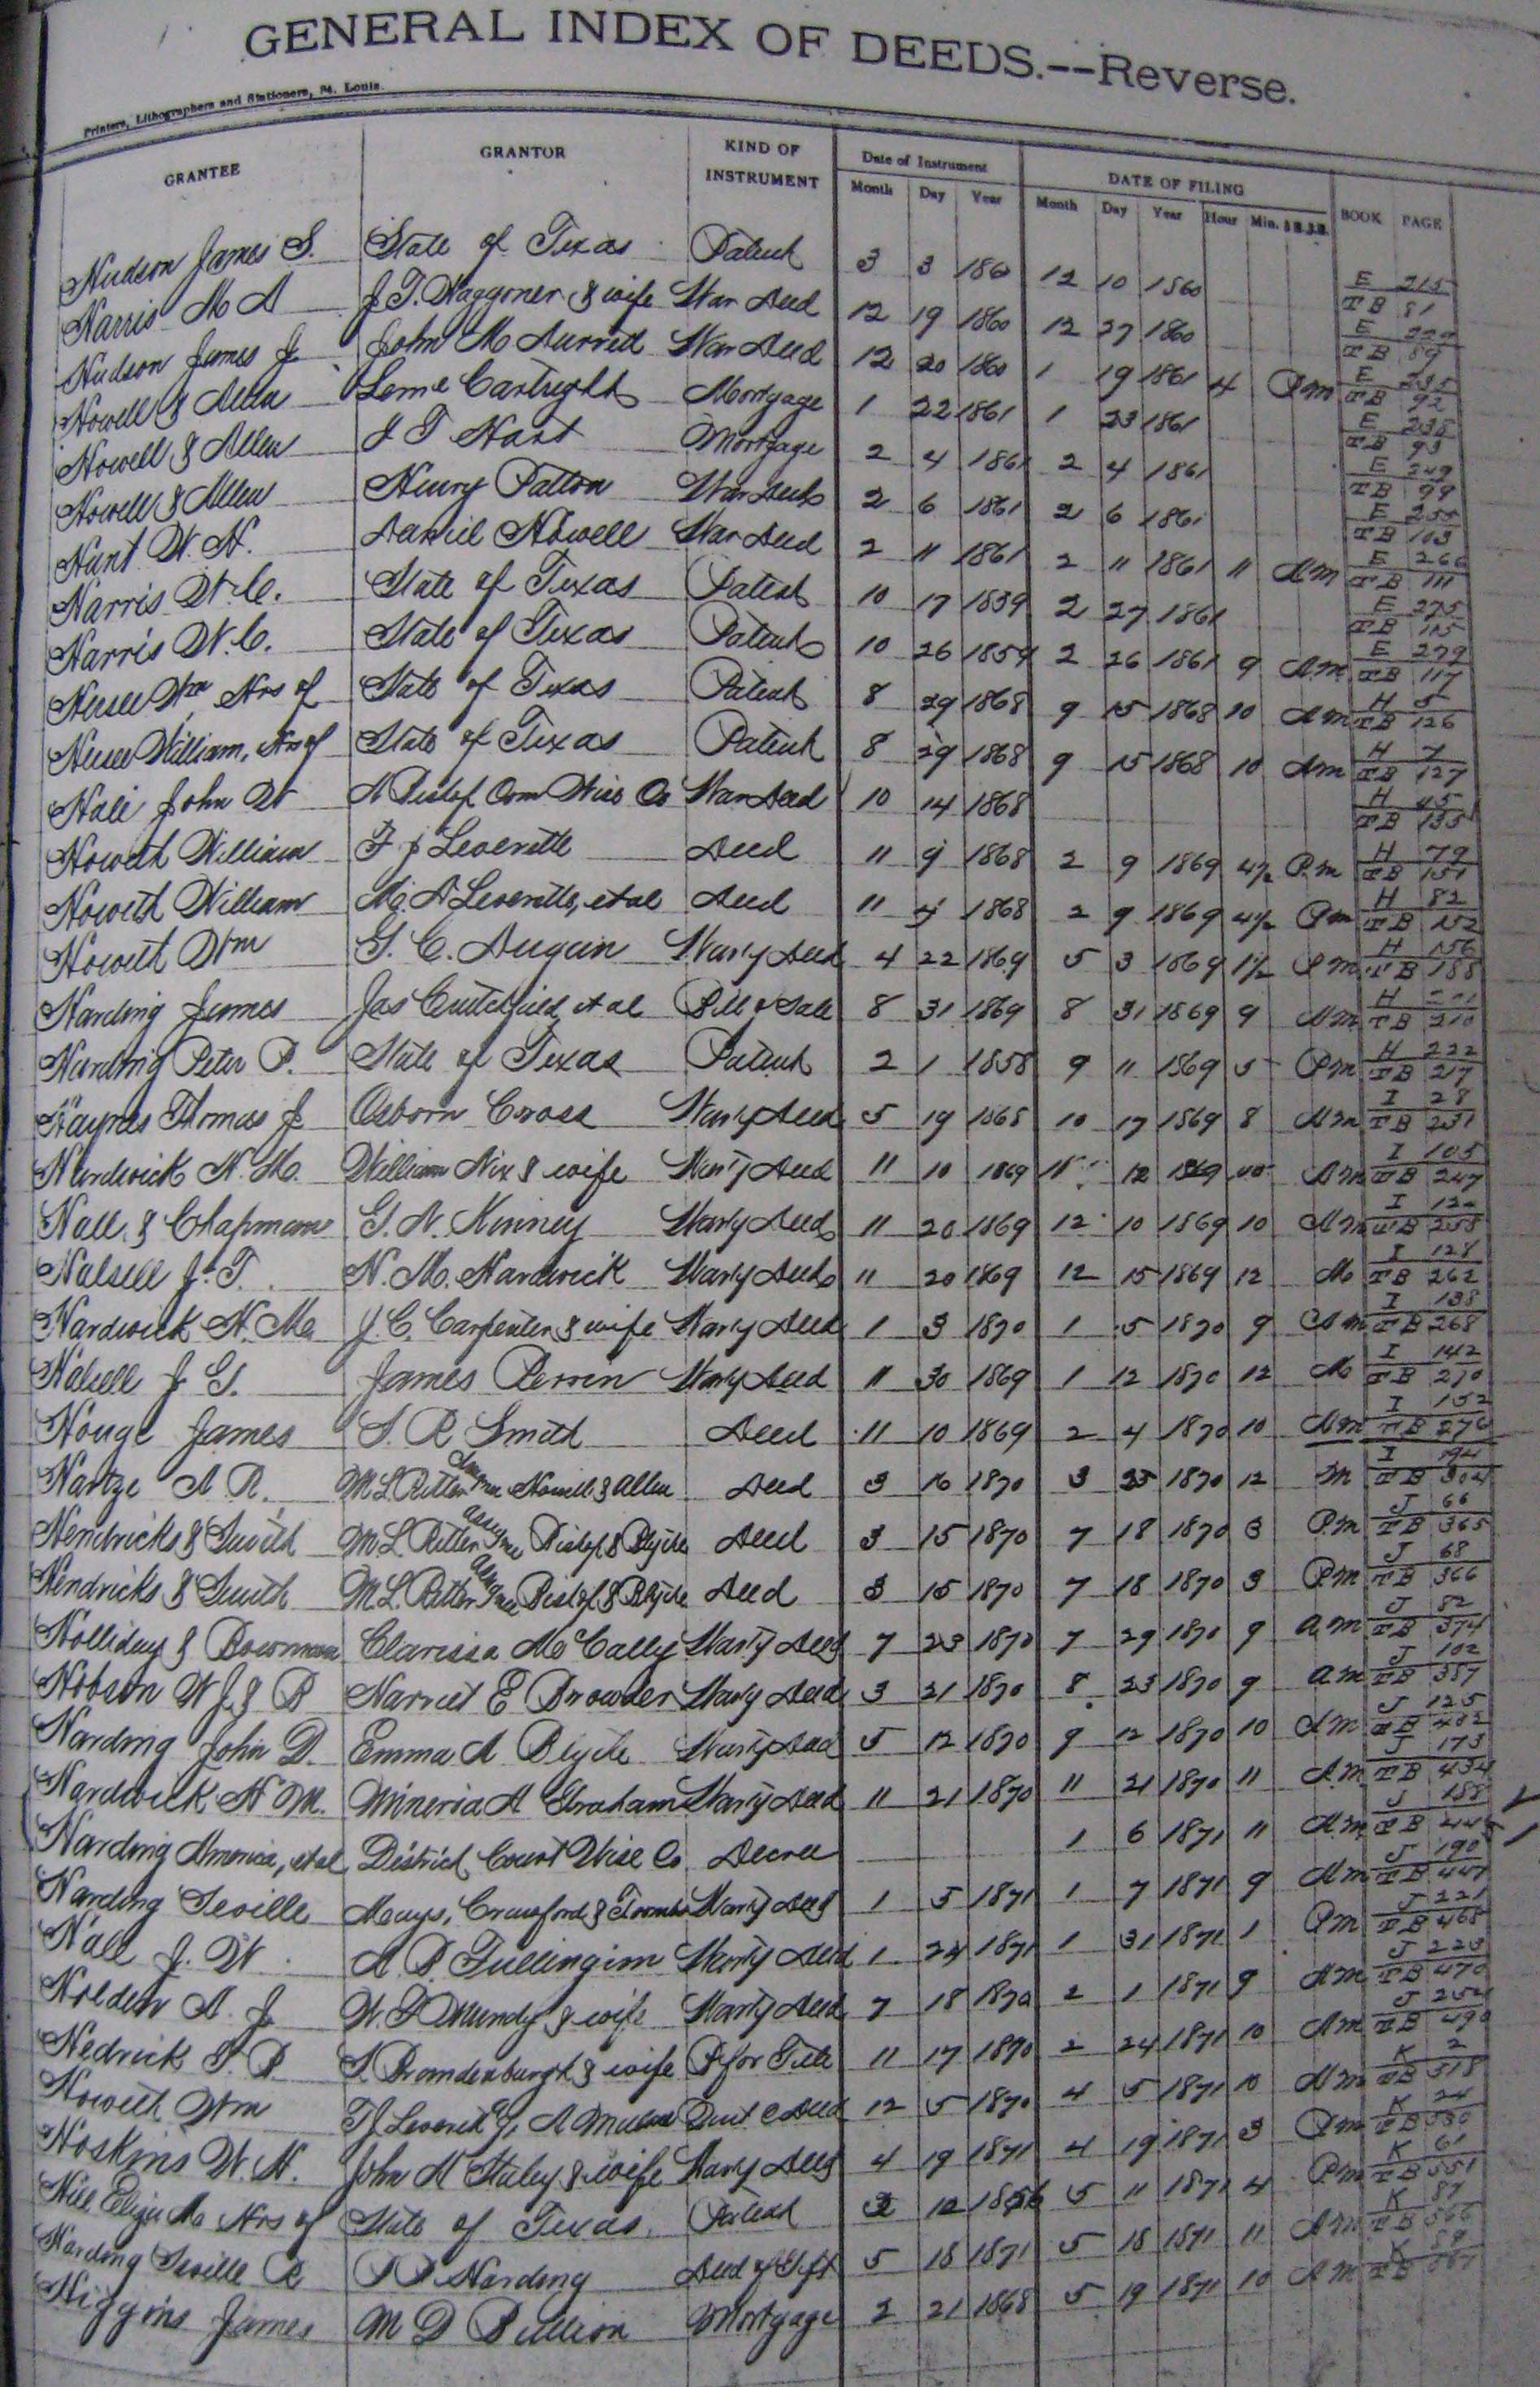 GENERAL INDEX OF DEEDS.--Reverse.
Printers, Lithographers and Stationers, St. Louis.
GRANTEE GRANTOR KIND OF INSTRUMENT Date of Instrument DATE OF FILING BOOK PAGE
Month Day Year Month Day Year Hour Min.
Hudson James S. State of Texas Patent 3 3 1860 12 10 1860 E 215 TB 81
Harris M A J. T. Waggoner & wife War Deed 12 19 1860 12 27 1860 E TB 89
Hudson James J John M War Deed 12 20 1860 1 19 1861 4 Pm E 235 TB 92
Howell & Allen Cartright Mortgage 1 22 1861 1 23 1861 E 238 TB 93
Howell & Allen J T Hart Mortgage 2 4 1861 2 4 1861 E 249 TB 99
Howell & Allen Henry Patton War Deed 2 6 1861 2 6 1861 E 255 TB 103
Hunt W. H. Daniel Howell War Deed 2 11 1861 2 11 1861 11 Am E 266 TB 111
Harris W. C. State of Texas Patent 10 17 1859 2 27 1861 E 275 TB 115
Harris W. C. State of Texas Patent 10 26 1859 2 26 1861 9 Am E 279 TB 117
Wm Hrs of State of Texas Patent 8 29 1868 9 15 1868 10 Am H 5 TB 126
William, Hrs of State of Texas Patent 8 29 1868 9 15 1868 10 Am H 7 TB 127
Hale John W Com Wise Co War Deed 10 14 1868 H 45 TB 135
Howeth William F J Leverette Deed 11 9 1868 2 9 1869 4½ Pm H 79 TB 151
Howeth William M. A Leverette, et al Deed 11 4 1868 2 9 1869 4½ Pm H 82 TB 152
Howeth Wm G. C. Dugan Warty Deed 4 22 1869 5 3 1869 1½ Pm H 156 TB 188
Harding James Jas Cutchfield et al Bill of Sale 8 31 1869 8 31 1869 9 Am H TB 210
Harding Peter P. State of Texas Patent 2 1 1858 9 11 1869 5 Pm H 222 TB 217
Haynes Thomas J Osborn Cross Warty Deed 5 19 1868 10 17 1869 8 Am I 28 TB 231
Hardwick N. M. William Nix & wife Warty Deed 11 10 1869 12 1869 10 Am I 105 TB 247
Hall & Chapman G. N. Kinney Warty Deed 11 20 1869 12 10 1869 10 Am I TB 258
Halsell J. T. N. M. Hardwick Warty Deed 11 20 1869 12 15 1869 12 M I 128 TB 262
Hardwick N. M. J. C. Carpenter & wife Warty Deed 1 3 1870 1 5 1870 9 Am I 138 TB 268
Halsell J G. James Perrin Warty Deed 11 30 1869 1 12 1870 12 M I 142 TB 270
Houge James S. R Smith Deed 11 10 1869 2 4 1870 10 Am I 152 TB 276
Hartze A R. M L Ritter Howell & Allen Deed 3 16 1870 3 1870 12 M I 194 TB 304
Hendricks & Smith M. L Ritter Deed 3 15 1870 7 18 1870 3 Pm J 66 TB 365
Hendricks & Smith M. L. Ritter Deed 3 15 1870 7 18 1870 3 Pm J 68 TB 366
Holliday & Bowman Clarissa McCally Warty Deed 7 23 1870 7 29 1870 9 am J 82 TB 374
Hobson W J. & B Harriet E Browder Warty Deed 3 21 1870 8 23 1870 9 am J 102 TB 387
Harding John D. Emma A Warty Deed 5 12 1870 9 12 1870 10 Am J 125 TB 402
Hardwick N M. A Graham Warty Deed 11 21 1870 11 21 1870 11 Am J 173 TB 434
Harding America, et al District Court Wise Co Decree 1 6 1871 11 Am J 188 TB
Harding Seville Mays, Crawford & Warty Deed 1 5 1871 1 7 1871 9 Am J 190 TB 447
Hall J. W A. B. Fullingim Warty Deed 1 24 1871 1 31 1871 1 Pm J 221 TB 468
Holden A. J W. F Mundy & wife Warty Deed 7 18 1870 2 1 1871 9 Am J 223 TB 470
Hedrick S. P. S. Brandenburgh & wife B for Title 11 17 1870 2 24 1871 10 Am J TB 490
Howeth Wm Quit C Deed 12 5 1870 4 5 1871 10 Am K 2 TB 518
Hoskins W. H. John H Staley & wife Warty Deed 4 19 1871 4 19 1871 3 Pm K 24 TB 530
Hill Eliza M Hrs of State of Texas Patent 12 5 11 1871 4 Pm K 61 TB 551
Harding Seville R Harding Deed of Gift 5 18 1871 5 18 1871 11 Am K 87 TB
Higgins James M D Bullion Mortgage 2 21 1868 5 19 1871 10 Am K TB